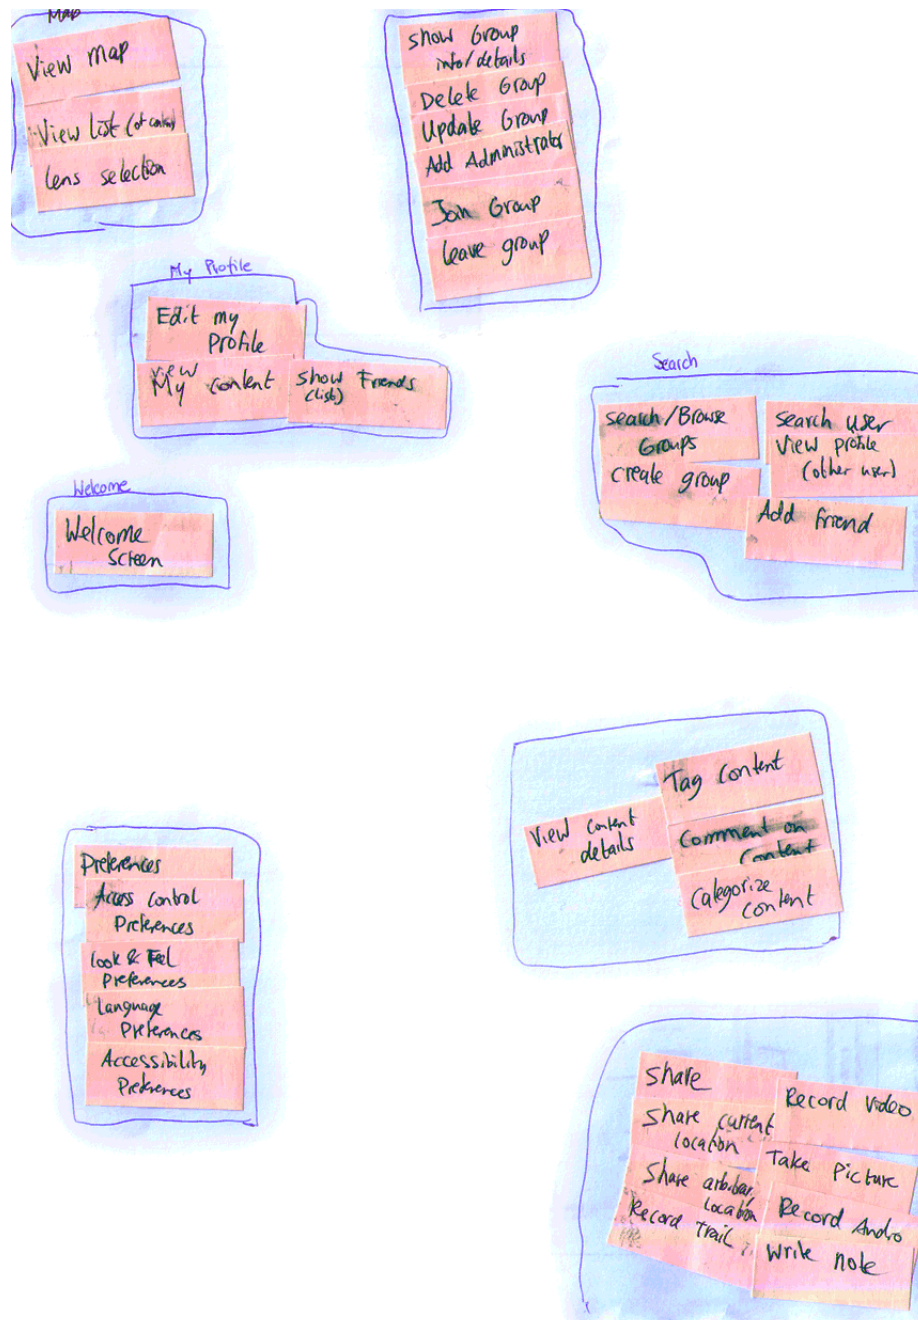 Map
View map
View list (of content)
Lens selection
show Group
info/details
Delete Group
Update Group
Add Administrator
Join Group
Leave group
My Profile
Edit my
Profile
view
My content
show Friends
(list)
Search
search/Browse
Groups
create group
search user
View profile
(other user)
Add friend
Welcome
Welcome
Screen
Tag content
View content
details
Comment on
Content
Categorize
content
Preferences
Access control
Preferences
Look & Feel
Preferences
Language
Preferences
Accessibility
Preferences
Share
Share current
location
Share arbitrary
location
Record Trail
Record Video
Take Picture
Record Audio
Write note